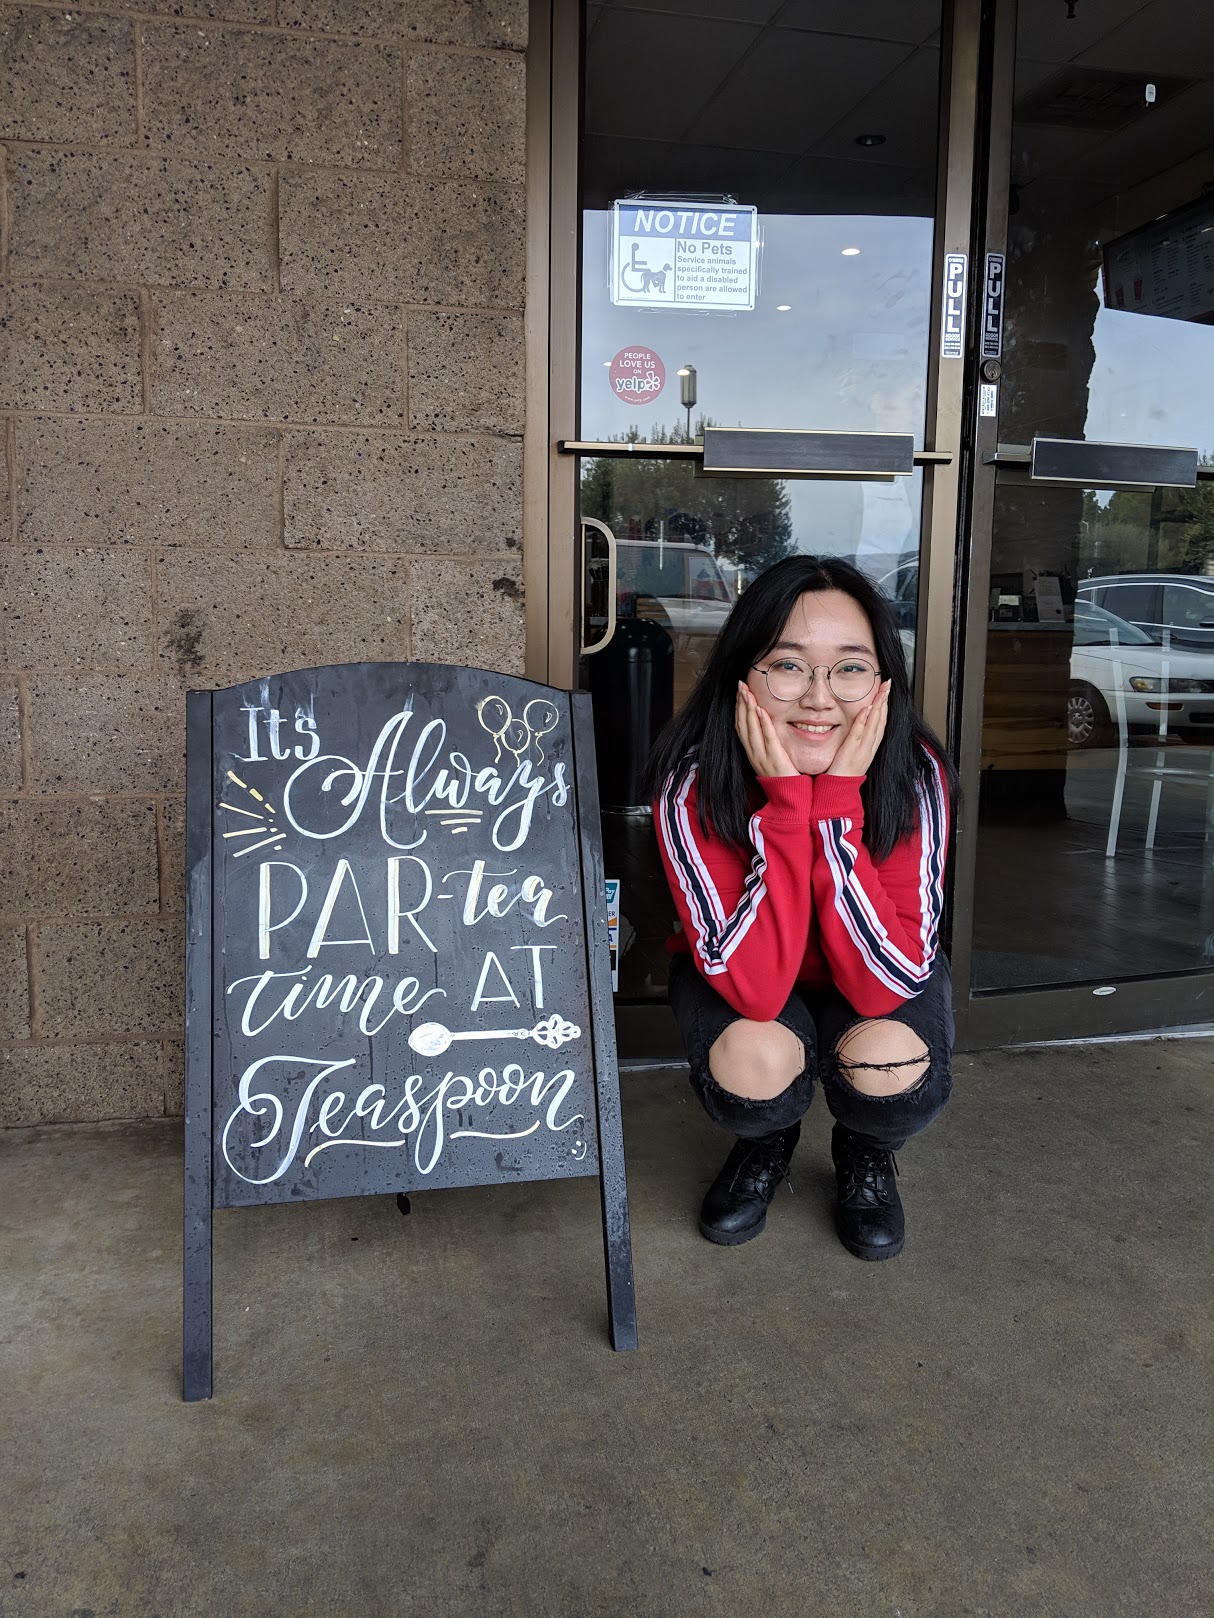 NOTICE
No Pets
Service animals
specifically trained
to aid a disabled
person are allowed
to enter
PEOPLE
LOVE US
ON
yelp
www.yelp.com
PULL
PULL
Its
Always
PAR-tea
time AT
Teaspoon